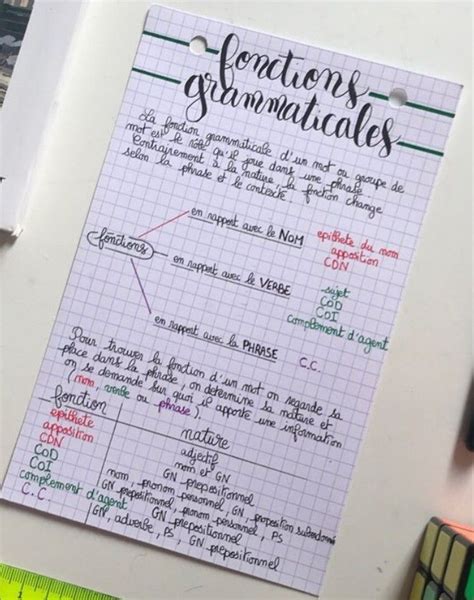 fonctions
grammaticales
La fonction grammaticale d'un mot ou groupe de
mot est le rôle qu'il joue dans une phrase.
Contrairement à la nature, la fonction change
selon la phrase et le contexte.
fonctions
en rapport avec le NOM
épithète du nom
apposition
CDN
en rapport avec le VERBE
sujet
COD
COI
complément d'agent
en rapport avec la PHRASE
C.C.
Pour trouver la fonction d'un mot on regarde sa
place dans la phrase, on détermine sa nature et
on se demande sur quoi il apporte une information
(nom, verbe ou phrase)
fonction
nature
épithète
adjectif
apposition
nom et GN
CDN
GN prépositionnel
COD
nom, pronom personnel, GN, proposition subordonné
COI
GN prépositionnel, pronom personnel, PS
complément d'agent
GN prépositionnel
C.C.
GN, adverbe, PS, GN prépositionnel
1